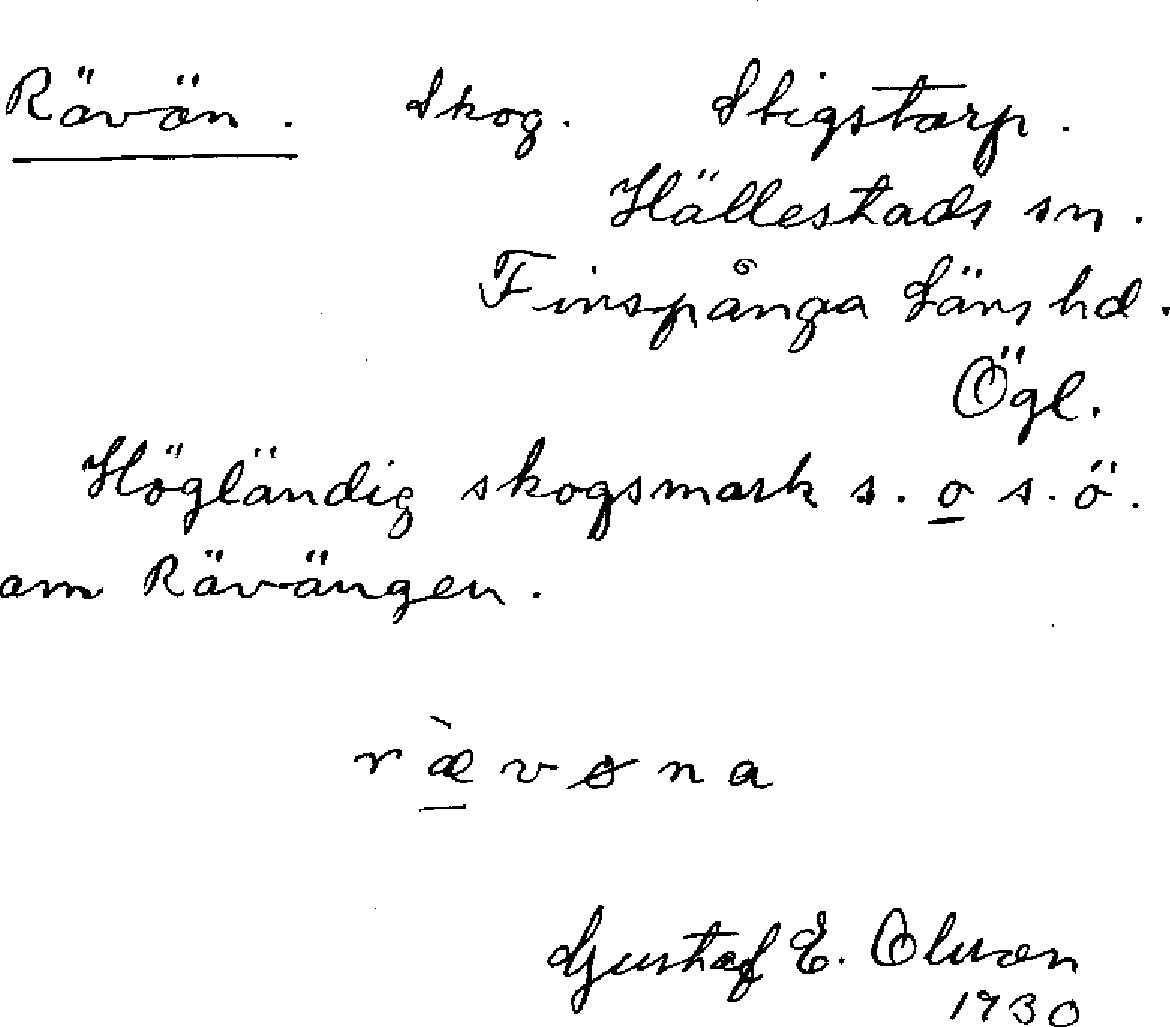 Rävön. Skog. Stigstorp.
Hällestads sn.
Finspånga läns hd.
Ögl.
Högländig skogsmark s. o s. ö.
om Rävängen.
r æ̀ v ø n a
Gustaf E. Olsson
1930